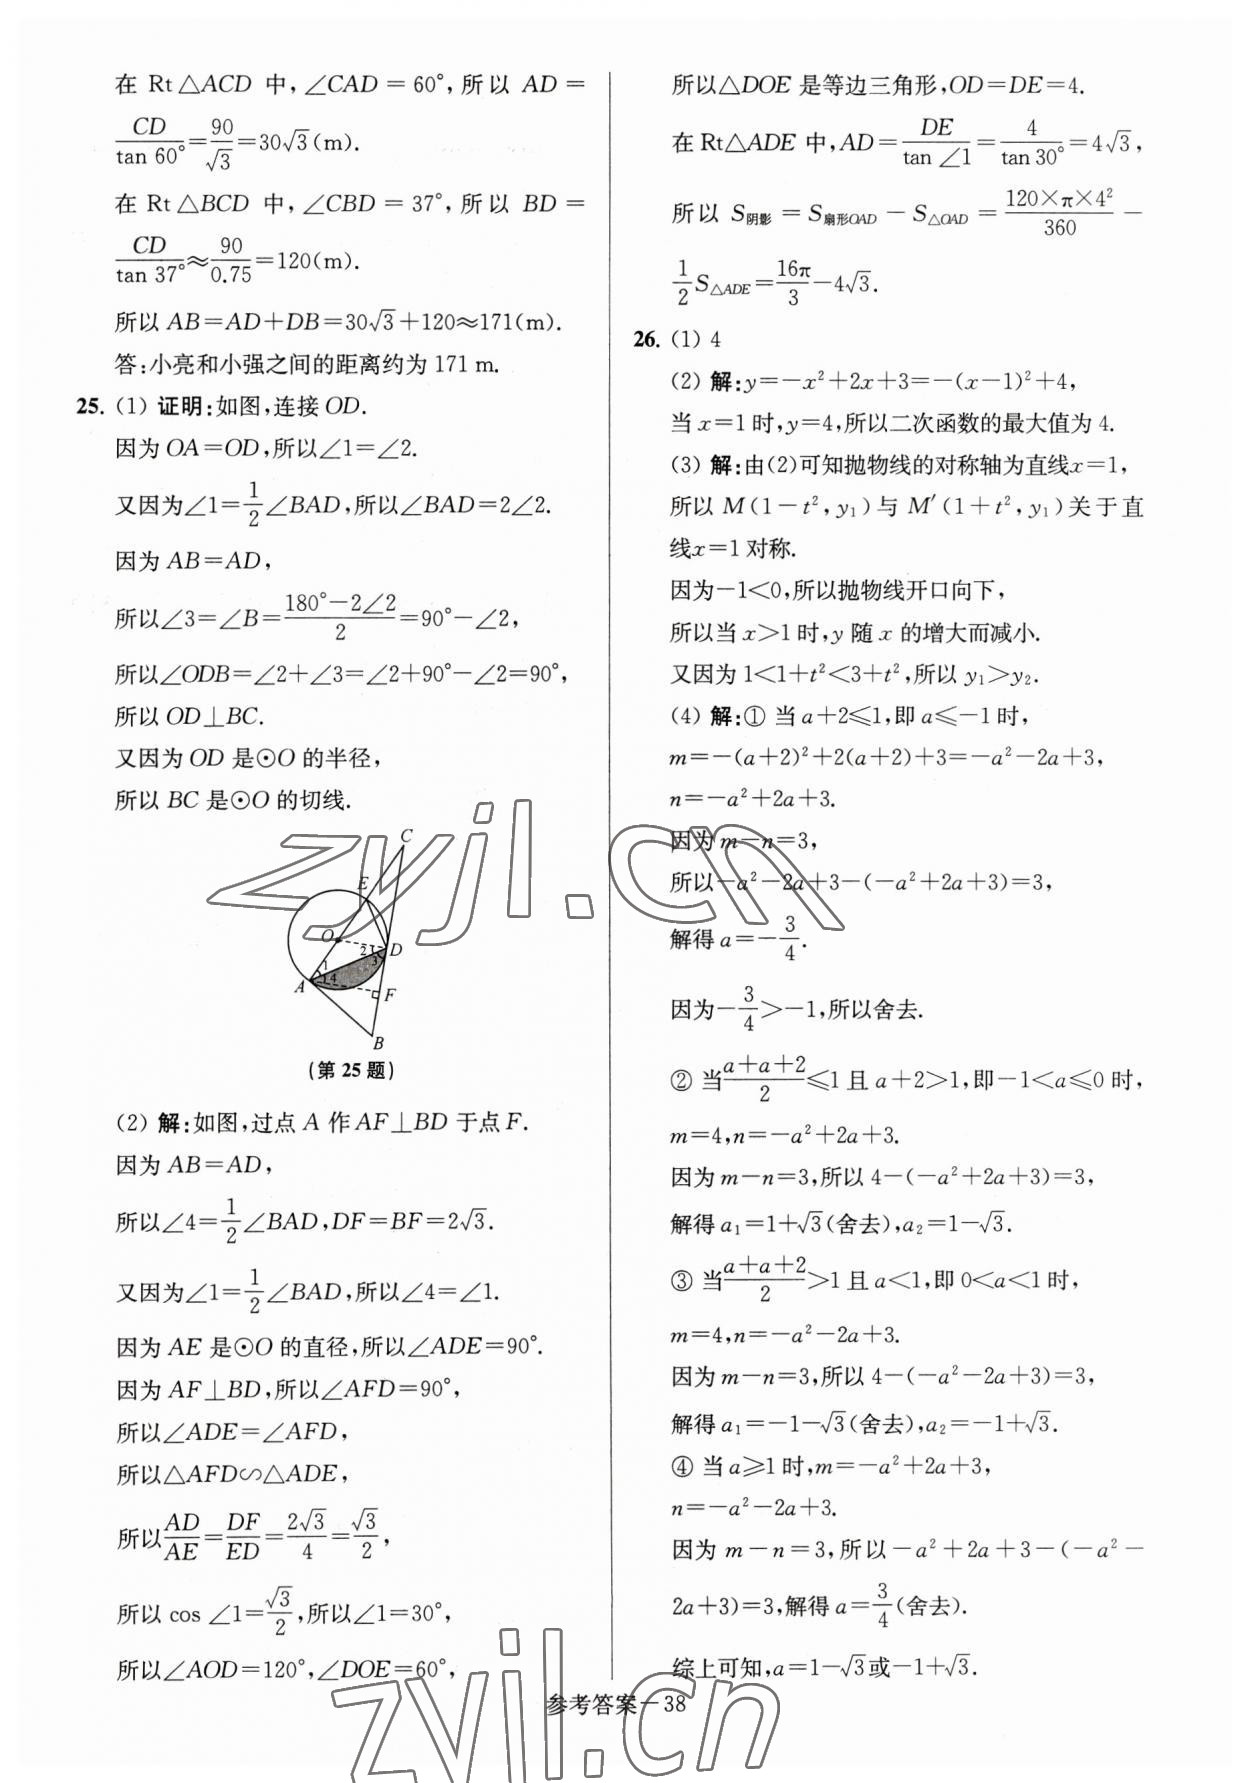 在 Rt△ACD 中,∠CAD=60°,所以 AD=
CD/tan 60°=90/√3=30√3(m).
在 Rt△BCD 中,∠CBD=37°,所以 BD=
CD/tan 37°≈90/0.75=120(m).
所以 AB=AD+DB=30√3+120≈171(m).
答:小亮和小强之间的距离约为 171 m.
25. (1) 证明:如图,连接 OD.
因为 OA=OD,所以∠1=∠2.
又因为∠1=1/2∠BAD,所以∠BAD=2∠2.
因为 AB=AD,
所以∠3=∠B=(180°-2∠2)/2=90°-∠2,
所以∠ODB=∠2+∠3=∠2+90°-∠2=90°,
所以 OD⊥BC.
又因为 OD 是⊙O 的半径,
所以 BC 是⊙O 的切线.
C
E
O
2
D
3
1
4
A
F
B
(第 25 题)
(2) 解:如图,过点 A 作 AF⊥BD 于点 F.
因为 AB=AD,
所以∠4=1/2∠BAD,DF=BF=2√3.
又因为∠1=1/2∠BAD,所以∠4=∠1.
因为 AE 是⊙O 的直径,所以∠ADE=90°.
因为 AF⊥BD,所以∠AFD=90°,
所以∠ADE=∠AFD,
所以△AFD∽△ADE,
所以AD/AE=DF/ED=2√3/4=√3/2,
所以 cos ∠1=√3/2,所以∠1=30°,
所以∠AOD=120°,∠DOE=60°,
所以△DOE 是等边三角形,OD=DE=4.
在 Rt△ADE 中,AD=DE/tan ∠1=4/tan 30°=4√3,
所以 S阴影=S扇形OAD-S△OAD=(120×π×4²)/360-
1/2 S△ADE=16π/3-4√3.
26. (1) 4
(2) 解:y=-x²+2x+3=-(x-1)²+4,
当 x=1 时,y=4,所以二次函数的最大值为 4.
(3) 解:由(2)可知抛物线的对称轴为直线x=1,
所以 M(1-t²,y₁)与 M′(1+t²,y₁)关于直
线x=1 对称.
因为-1<0,所以抛物线开口向下,
所以当 x>1 时,y 随 x 的增大而减小.
又因为 1<1+t²<3+t²,所以 y₁>y₂.
(4) 解:① 当 a+2≤1,即 a≤-1 时,
m=-(a+2)²+2(a+2)+3=-a²-2a+3,
n=-a²+2a+3.
因为 m-n=3,
所以-a²-2a+3-(-a²+2a+3)=3,
解得 a=-3/4.
因为-3/4>-1,所以舍去.
② 当(a+a+2)/2≤1 且 a+2>1,即-1<a≤0 时,
m=4,n=-a²+2a+3.
因为 m-n=3,所以 4-(-a²+2a+3)=3,
解得 a₁=1+√3(舍去),a₂=1-√3.
③ 当(a+a+2)/2>1 且 a<1,即 0<a<1 时,
m=4,n=-a²-2a+3.
因为 m-n=3,所以 4-(-a²-2a+3)=3,
解得 a₁=-1-√3(舍去),a₂=-1+√3.
④ 当 a≥1 时,m=-a²+2a+3,
n=-a²-2a+3.
因为 m-n=3,所以-a²+2a+3-(-a²-
2a+3)=3,解得 a=3/4(舍去).
综上可知,a=1-√3或-1+√3.
参考答案-38
zyjl.cn
zyjl.cn